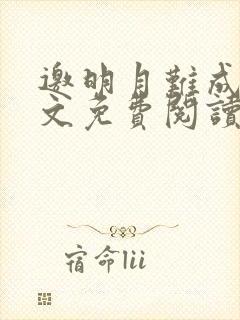 邀明月難成
文免費閱讀
宿命lii